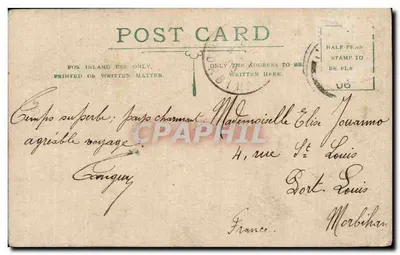 POST CARD
FOR INLAND USE ONLY,
PRINTED OR WRITTEN MATTER.
ONLY THE ADDRESS TO BE
WRITTEN HERE.
HALF-PENNY
STAMP TO
BE PLA
06
Temps superbe, pays charmant
agréable voyage.
Tanguy
Mademoiselle Elise Jouanno
4, rue St Louis
Port Louis
Morbihan
France.
CPAPHIL